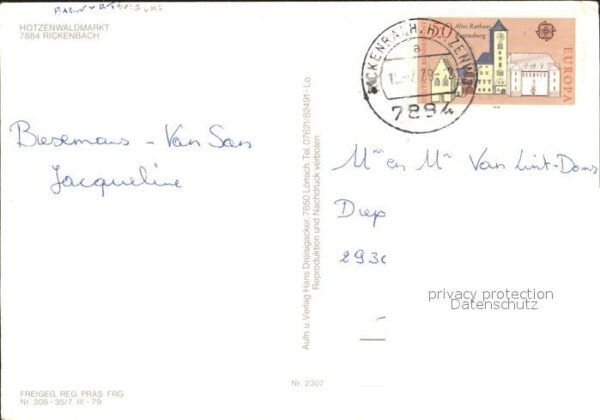 HOTZENWALDMARKT
7884 RICKENBACH
Biesemans - Van San
Jacqueline
Aufn. u. Verlag Hans Dreisigacker, 7850 Lörrach, Tel. 07621/82491 - Lo
Reproduktion und Nachdruck verboten
Nr. 2307
FREIGEG. REG. PRÄS. FRG
Nr. 308 - 35/7. III - 79
50
Altes Rathaus
Regensburg
EUROPA
DEUTSCHE BUNDESPOST
RICKENBACH, HOTZENW
a
7894
Mr en Mw Van Lint-Doms
Diep
293
privacy protection
Datenschutz